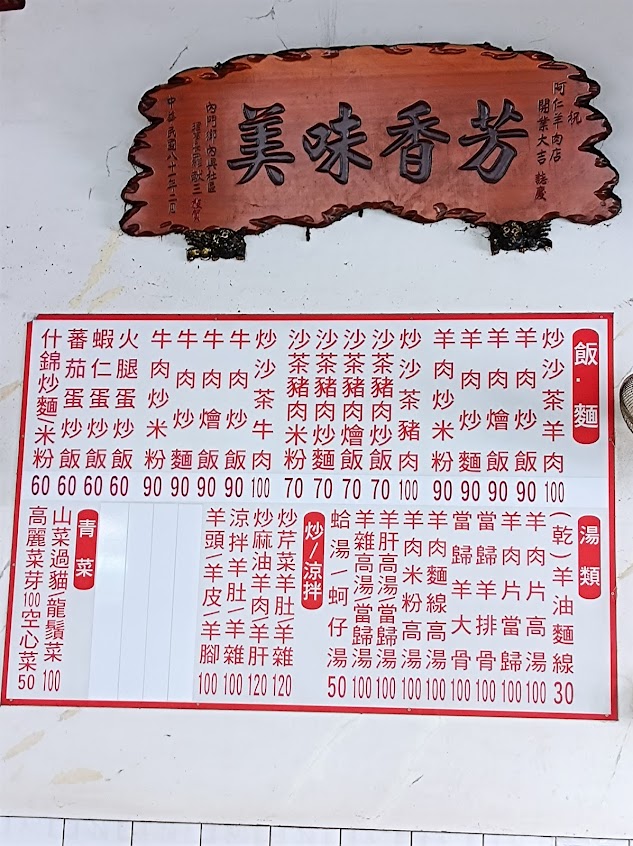 祝
阿仁羊肉店
開業大吉誌慶
芳香味美
內門鄉內興社區
中華民國八十一年十二月
飯．麵
炒沙茶羊肉 100
羊肉炒飯 90
羊肉燴飯 90
羊肉炒麵 90
羊肉炒米粉 90
炒沙茶豬肉 100
沙茶豬肉炒飯 70
沙茶豬肉燴飯 70
沙茶豬肉炒麵 70
沙茶豬肉米粉 70
炒沙茶牛肉 100
牛肉炒飯 90
牛肉燴飯 90
牛肉炒麵 90
牛肉炒米粉 90
火腿蛋炒飯 60
蝦仁蛋炒飯 60
蕃茄蛋炒飯 60
什錦炒麵/米粉 60
湯類
(乾)羊油麵線 30
羊肉片高湯 100
羊肉片當歸 100
當歸羊排骨 100
當歸羊大骨 100
羊肉麵線高湯 100
羊肉米粉高湯 100
羊肝高湯/當歸湯 100
羊雜高湯/當歸湯 100
蛤湯/蚵仔湯 50
炒/涼拌
炒芹菜羊肚/羊雜 120
炒麻油羊肉/羊肝 120
涼拌羊肚/羊雜 100
羊頭/羊皮/羊腳 100
青菜
山菜過貓/龍鬚菜 100
高麗菜芽100空心菜 50